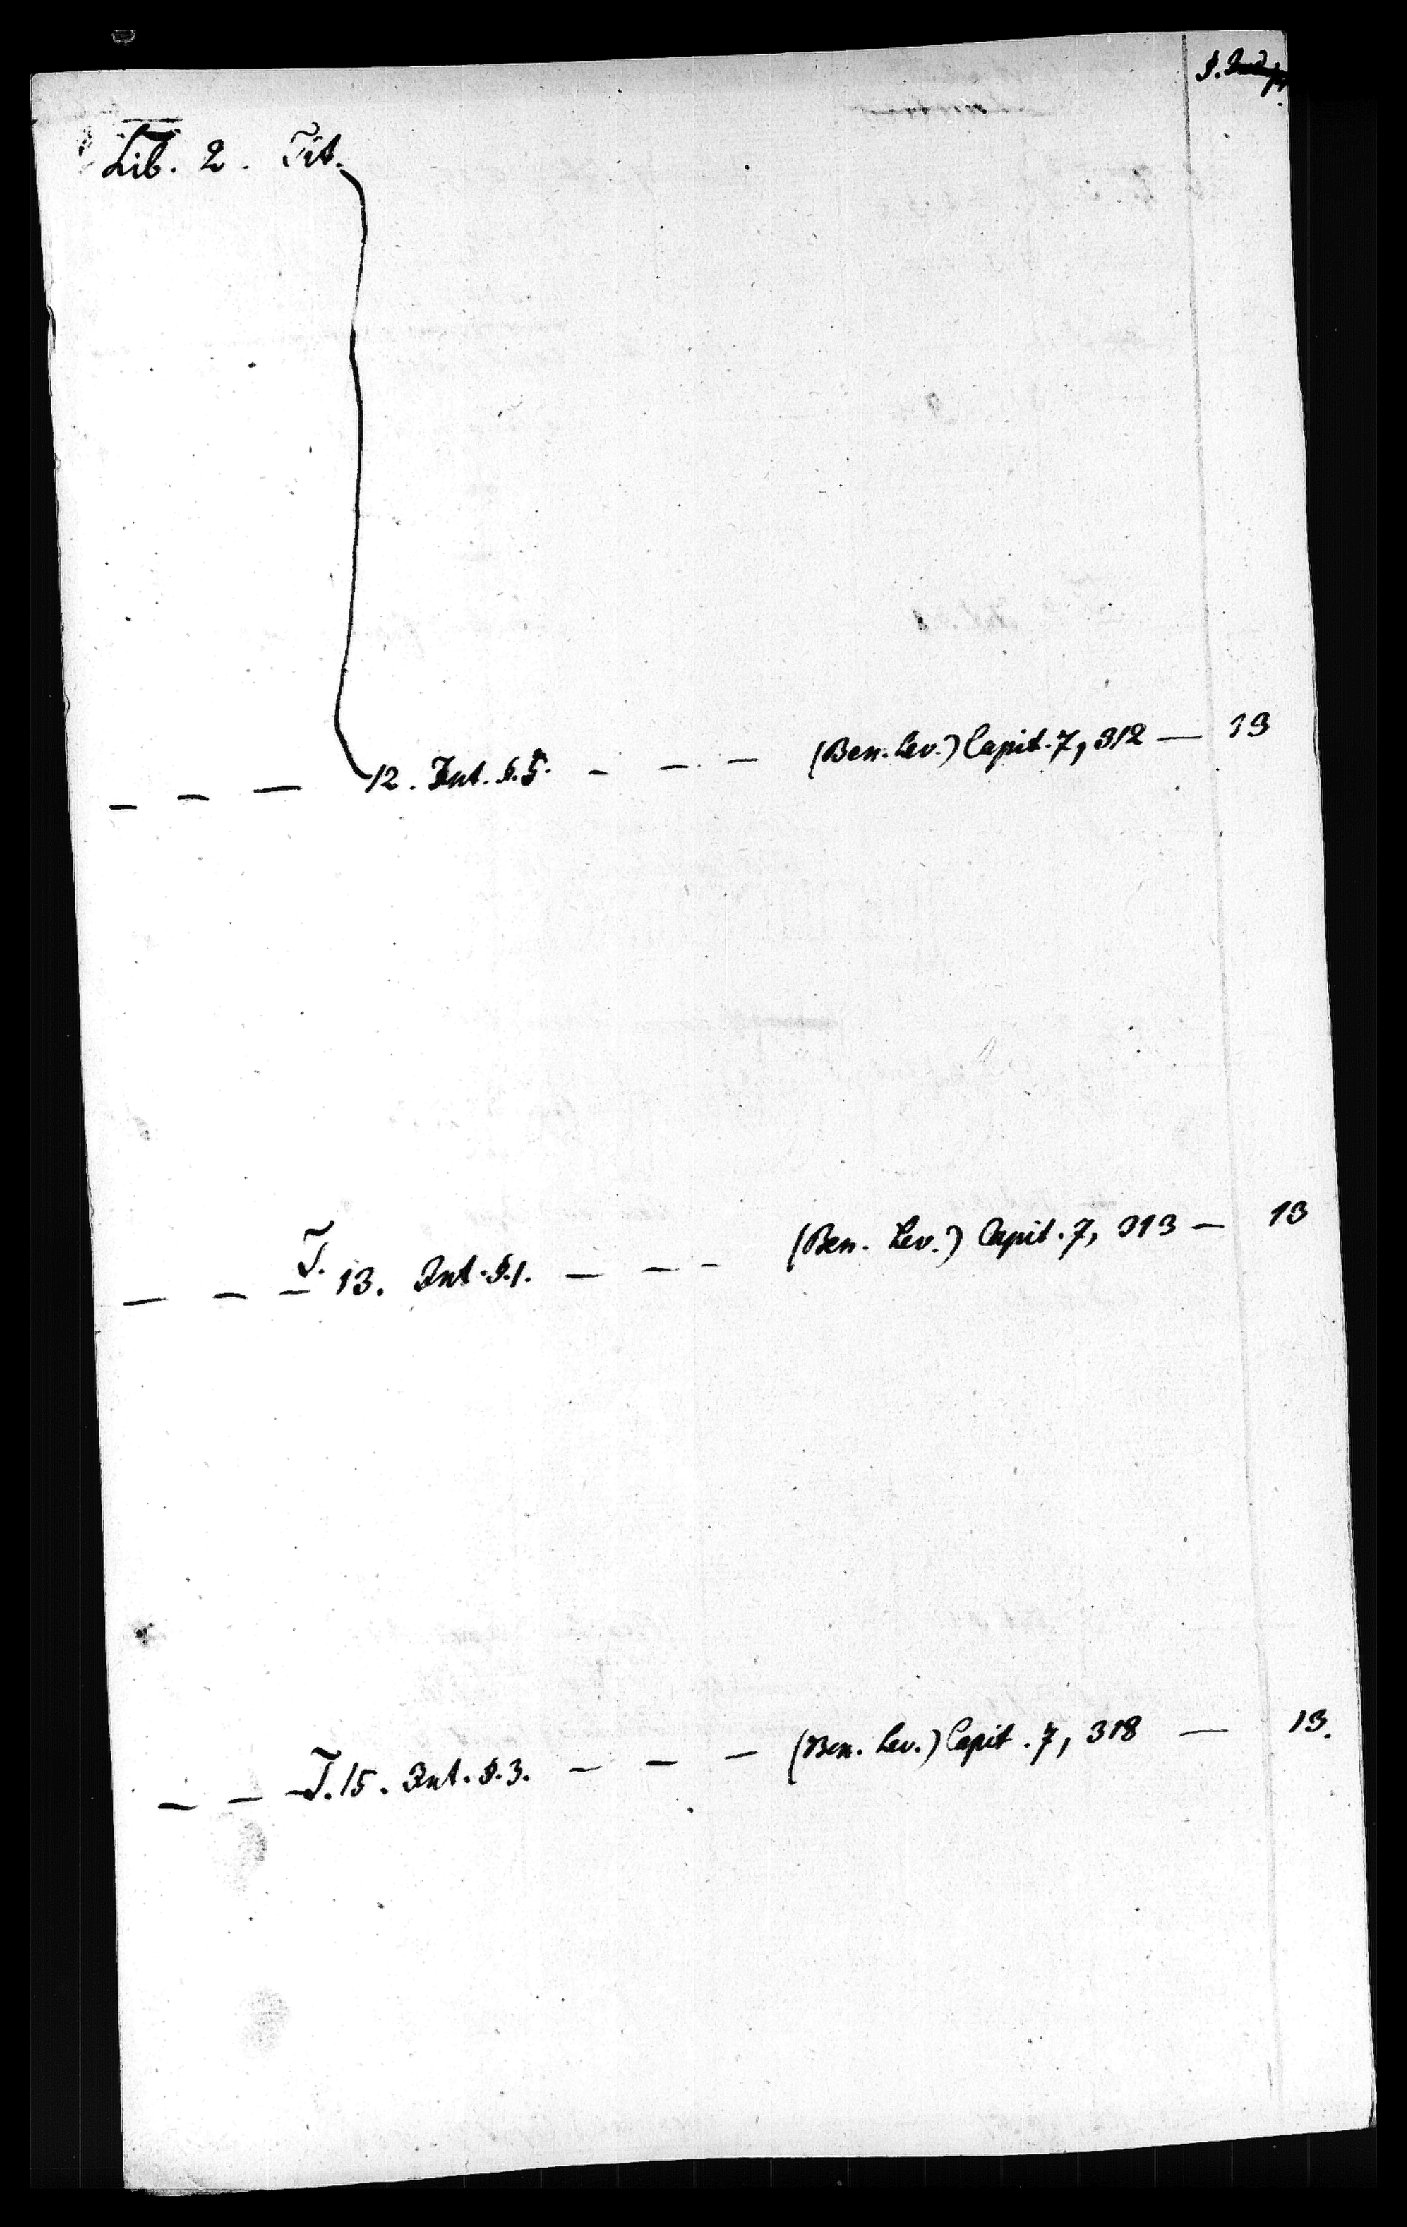 Lib. 2. Tit.
12. Int. §. 5. - - - (Ben. Lev.) Capit. 7, 312 — 13
T. 13. Int. §. 1. — - - (Ben. Lev.) Capit. 7, 313 — 13
T. 15. Int. §. 3. — — — (Ben. Lev.) Capit. 7, 318 — 13.